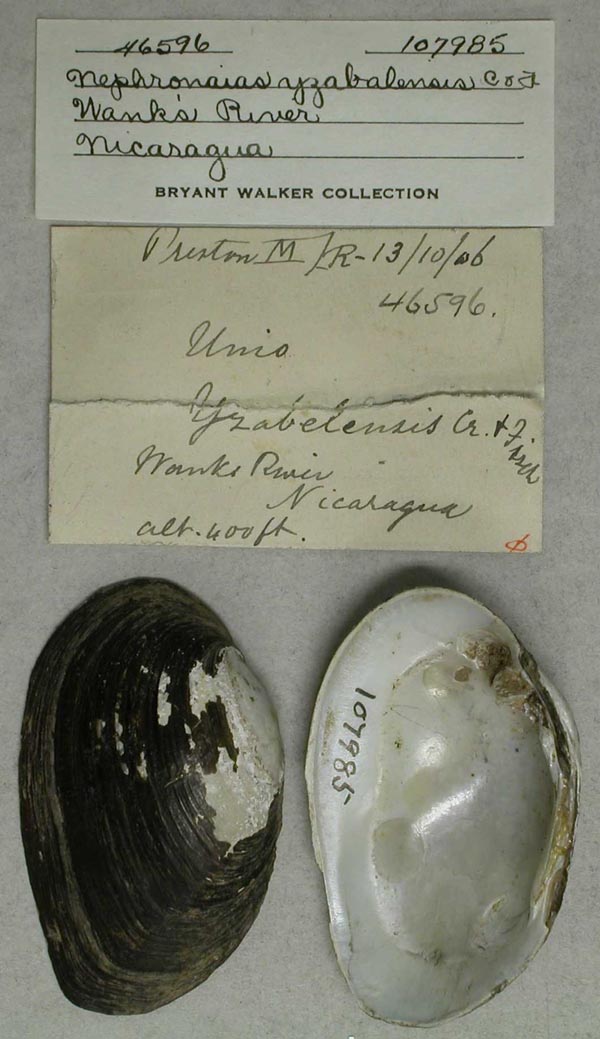 46596 107985
Nephronaias yzabalensis C & F
Wank's River
Nicaragua
BRYANT WALKER COLLECTION
Preston M/R-13/10/06
46596.
Unio
Yzabelensis Cr. & F.
Wanks River
Nicaragua
alt. 400 ft.
107985